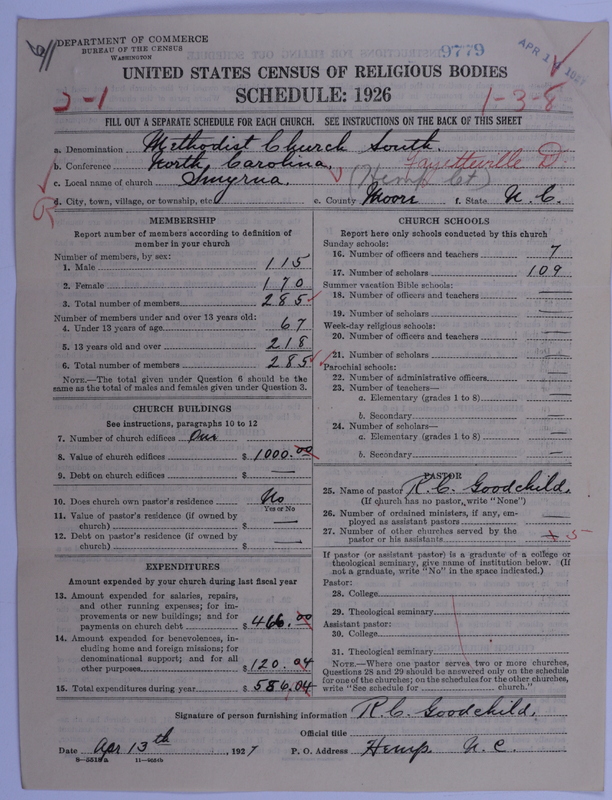 DEPARTMENT OF COMMERCE
BUREAU OF THE CENSUS
WASHINGTON
9779
APR 1
UNITED STATES CENSUS OF RELIGIOUS BODIES
SCHEDULE: 1926
2-1
1-3-8
FILL OUT A SEPARATE SCHEDULE FOR EACH CHURCH. SEE INSTRUCTIONS ON THE BACK OF THIS SHEET
a. Denomination Methodist Church South.
b. Conference North Carolina, Fayetteville D.
c. Local name of church Smyrna. (Hemp Ct)
d. City, town, village, or township, etc. e. County Moore f. State N. C.
R
MEMBERSHIP
Report number of members according to definition of
member in your church
Number of members, by sex:
1. Male 115
2. Female 170
3. Total number of members 285
Number of members under and over 13 years old:
4. Under 13 years of age 67
5. 13 years old and over 218
6. Total number of members 285
NOTE.—The total given under Question 6 should be the
same as the total of males and females given under Question 3.
CHURCH BUILDINGS
See instructions, paragraphs 10 to 12
7. Number of church edifices One
8. Value of church edifices $ 1000.00
9. Debt on church edifices $ —
10. Does church own pastor's residence No
Yes or No
11. Value of pastor's residence (if owned by
church) $ —
12. Debt on pastor's residence (if owned by
church) $ —
EXPENDITURES
Amount expended by your church during last fiscal year
13. Amount expended for salaries, repairs,
and other running expenses; for im-
provements or new buildings; and for
payments on church debt $ 466.00
14. Amount expended for benevolences, in-
cluding home and foreign missions; for
denominational support; and for all
other purposes $ 120.04
15. Total expenditures during year $ 586.04
CHURCH SCHOOLS
Report here only schools conducted by this church
Sunday schools:
16. Number of officers and teachers 7
17. Number of scholars 109
Summer vacation Bible schools:
18. Number of officers and teachers —
19. Number of scholars —
Week-day religious schools:
20. Number of officers and teachers —
21. Number of scholars —
Parochial schools:
22. Number of administrative officers —
23. Number of teachers—
a. Elementary (grades 1 to 8) —
b. Secondary —
24. Number of scholars—
a. Elementary (grades 1 to 8) —
b. Secondary —
PASTOR
25. Name of pastor R. C. Goodchild,
(If church has no pastor, write "None")
26. Number of ordained ministers, if any, em-
ployed as assistant pastors —
27. Number of other churches served by the
pastor or his assistants 5
If pastor (or assistant pastor) is a graduate of a college or
theological seminary, give name of institution below. (If
not a graduate, write "No" in the space indicated.)
Pastor:
28. College
29. Theological seminary
Assistant pastor:
30. College
31. Theological seminary
NOTE.—Where one pastor serves two or more churches,
Questions 28 and 29 should be answered only on the schedule
for one of the churches; on the schedules for the other churches,
write "See schedule for church."
Signature of person furnishing information R. C. Goodchild,
Official title
Date Apr 13th, 1927 P. O. Address Hemp N. C.
8—5518a 11—9554b